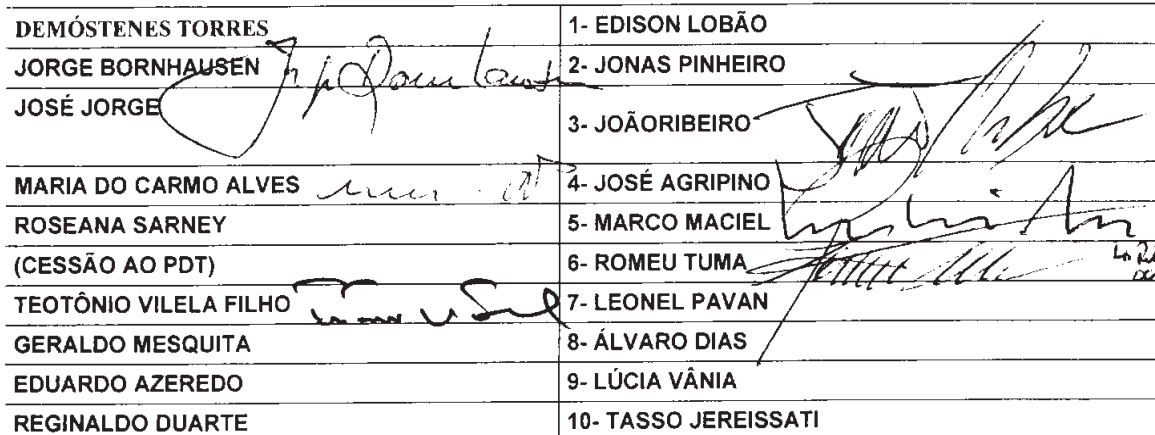 DEMÓSTENES TORRES
1- EDISON LOBÃO
JORGE BORNHAUSEN
2- JONAS PINHEIRO
JOSÉ JORGE
3- JOÃORIBEIRO
MARIA DO CARMO ALVES
4- JOSÉ AGRIPINO
ROSEANA SARNEY
5- MARCO MACIEL
(CESSÃO AO PDT)
6- ROMEU TUMA
TEOTÔNIO VILELA FILHO
7- LEONEL PAVAN
GERALDO MESQUITA
8- ÁLVARO DIAS
EDUARDO AZEREDO
9- LÚCIA VÂNIA
REGINALDO DUARTE
10- TASSO JEREISSATI